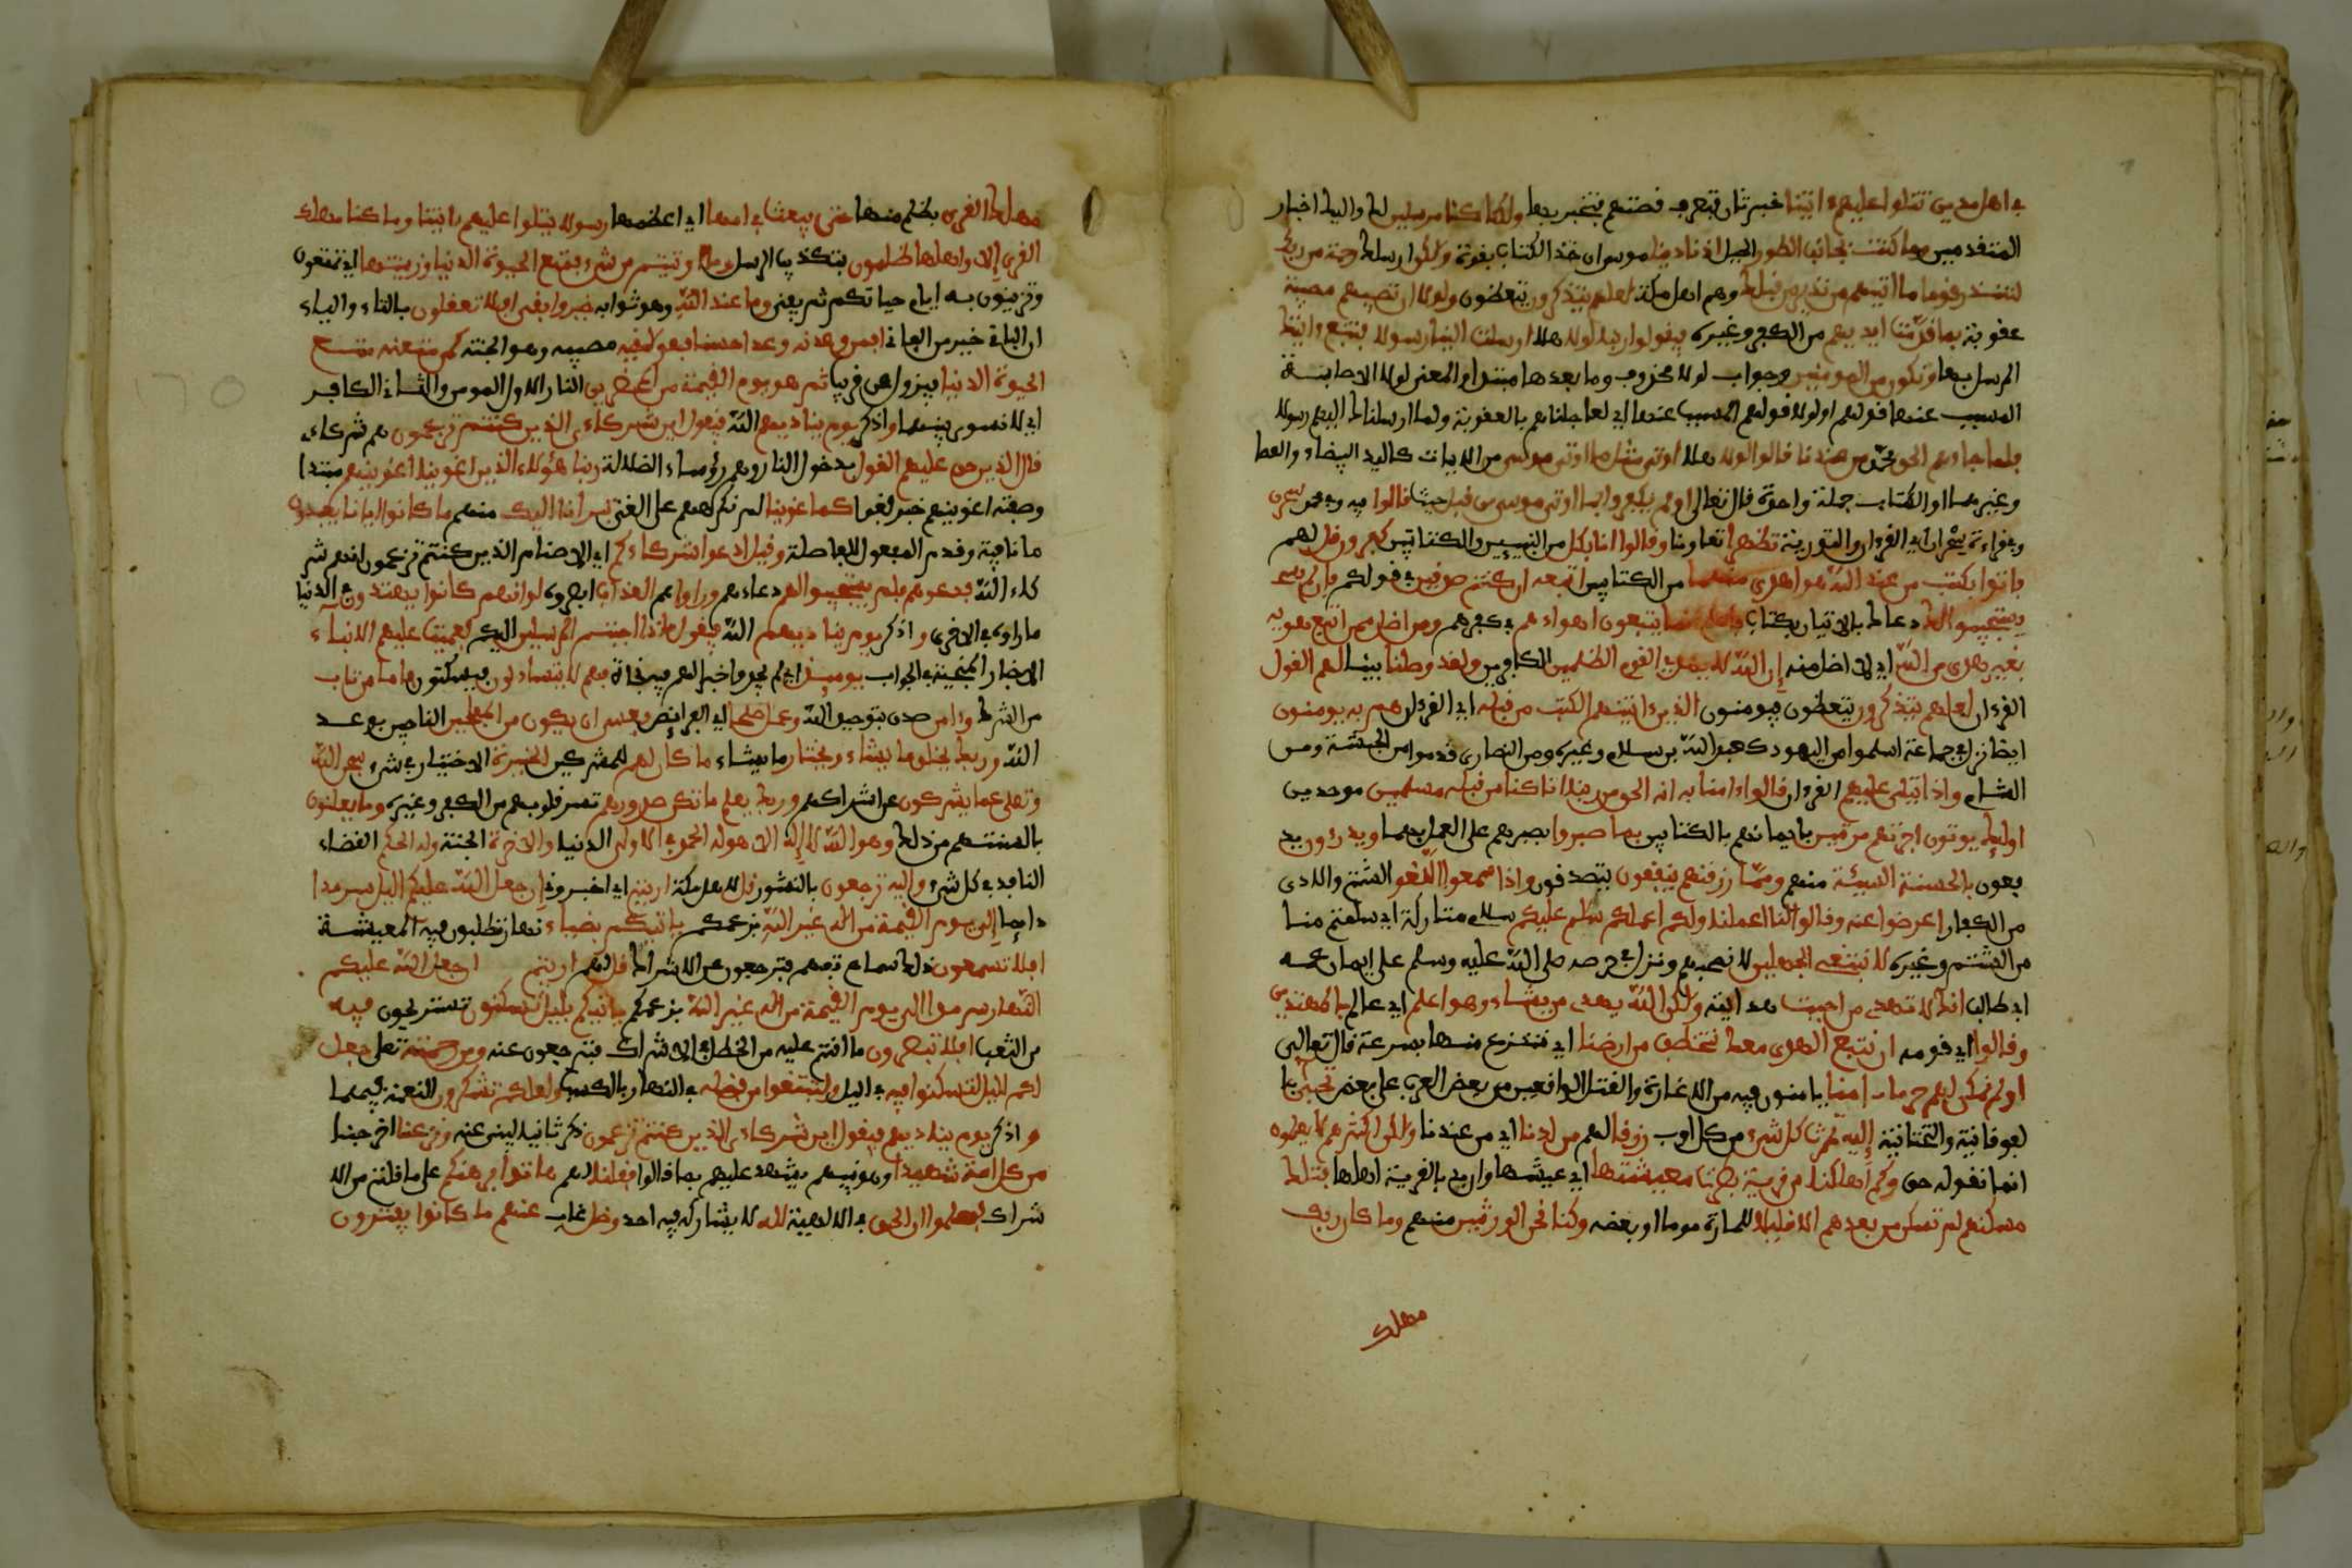 في اهل مدين تتلوا عليهم ءايتنا خبر ثان فتعرف قصتهم فتخبر بها ولكنا كنا مرسلين لك واليك اخبار
المتقدمين وما كنت بجانب الطور الجبل اذ نادينا موسى ان خذ الكتاب بقوة ولكن ارسلك رحمة من ربك
لتنذر قوما ما اتيهم من نذير من قبلك وهم اهل مكة لعلهم يتذكرون يتعظون ولولا ان تصيبهم مصيبة
عقوبة بما قدمت ايديهم من الكفر وغيره فيقولوا ربنا لولا هلا ارسلت الينا رسولا فنتبع ءايتك
المرسل بها ونكون من المومنين وجواب لولا محذوف وما بعدها مبتدا والمعنى لولا الاصابة
المسبب عنها قولهم او لولا قولهم المسبب عنها اي لعاجلناهم بالعقوبة ولما ارسلناك اليهم رسولا
فلما جاءهم الحق محمد من عندنا قالوا لولا هلا اوتي مثل ما اوتي موسى من الايات كاليد البيضاء والعصا
وغيرهما او الكتاب جملة واحدة قال تعالى اولم يكفروا بما اوتي موسى من قبل حيث قالوا فيه وفي محمد سحرن
وفي قراءة سحران اي القرءان والتورية تظهرا تعاونا وقالوا انا بكل من النبيين والكتابين كفرون قل لهم
فاتوا بكتب من عند الله هو اهدى منهما من الكتابين اتبعه ان كنتم صدقين في قولكم فان لم يسـ
ـتجيبوا لك دعاءك بالاتيان بكتاب فاعلم انما يتبعون اهواءهم في كفرهم ومن اضل ممن اتبع هويه
بغير هدى من الله اي لا اضل منه ان الله لا يهدي القوم الظلمين الكافرين ولقد وصلنا بينا لهم القول
القرءان لعلهم يتذكرون يتعظون فيومنون الذين ءاتينهم الكتب من قبله اي القرءان هم به يومنون
ايضا نزل في جماعة اسلموا من اليهود كعبد الله بن سلام وغيره ومن النصارى قدموا من الحبشة ومن
الشام واذا يتلى عليهم القرءان قالوا ءامنا به انه الحق من ربنا انا كنا من قبله مسلمين موحدين
اولئك يوتون اجرهم مرتين بايمانهم بالكتابين بما صبروا بصبرهم على العمل بهما ويدرءون يد
فعون بالحسنة السيئة منهم ومما رزقنهم ينفقون يتصدقون واذا سمعوا اللغو الشتم والاذى
من الكفار اعرضوا عنه وقالوا لنا اعملنا ولكم اعملكم سلم عليكم سلام متاركة اي سلمتم منا
من الشتم وغيره لا نبتغي الجهلين لا نصحبهم ونزل في حرصه صلى الله عليه وسلم على ايمان عمه
ابي طالب انك لا تهدي من احببت هدايته ولكن الله يهدي من يشاء وهو اعلم اي عالم بالمهتدين
وقالوا اي قومه ان نتبع الهدى معك نتخطف من ارضنا اي ننتزع منها بسرعة قال تعالى
اولم نمكن لهم حرما ءامنا يامنون فيه من الاغارة والقتل الواقعين من بعض العرب على بعض تجبى با
لفوقانية والتحتانية اليه ثمرت كل شيء من كل اوب رزقا لهم من لدنا اي من عندنا ولكن اكثرهم لا يعلمون
ان ما نقوله حق وكم اهلكنا من قرية بطرت معيشتها اي عيشها واريد بالقرية اهلها فتلك
مسكنهم لم تسكن من بعدهم الا قليلا للمارة يوما او بعضه وكنا نحن الورثين منهم وما كان ربك
مهلك
مهلك القرى بظلم منها حتى يبعث في امها اي اعظمها رسولا يتلوا عليهم ءايتنا وما كنا مهلك
القرى الا واهلها ظلمون بتكذيب الرسل وما اوتيتم من شيء فمتع الحيوة الدنيا وزينتها اي تتمتعون
وتتزينون به ايام حياتكم ثم يفنى وما عند الله وهو ثوابه خير وابقى افلا تعقلون بالتاء والياء
ان الباقي خير من الفاني افمن وعدنه وعدا حسنا فهو لقيه مصيبه وهو الجنة كمن متعنه متع
الحيوة الدنيا فيزول عن قريب ثم هو يوم القيمة من المحضرين النار الاول المومن والثاني الكافر
اي لا تسوى بينهما واذكر يوم يناديهم الله فيقول اين شركاءي الذين كنتم تزعمون هم شركاءي
قال الذين حق عليهم القول بدخول النار وهم رؤساء الضلالة ربنا هؤلاء الذين اغوينا اغوينهم مبتدا
وصفته اغوينهم خبر لغوا كما غوينا لم نكرههم على الغي تبرانا اليك منهم ما كانوا ايانا يعبدون
ما نافية وقدم المفعول للفاصلة وقيل ادعوا شركاءكم اي الاصنام الذين كنتم تزعمون انهم شر
كاء الله فدعوهم فلم يستجيبوا لهم دعاءهم وراوا هم العذاب ابصروه لو انهم كانوا يهتدون في الدنيا
ما راوه في الاخرى واذكر يوم يناديهم الله فيقول ماذا اجبتم المرسلين اليكم فعميت عليهم الانباء
الاخبار المنجية في الجواب يومئذ اي لم يجدوا خبرا لهم فيه نجاة فهم لا يتساءلون فيسكتون فاما من تاب
من الشرك وءامن صدق بتوحيد الله وعمل صلحا ادى الفرائض فعسى ان يكون من المفلحين الناجين بوعد
الله وربك يخلق ما يشاء ويختار ما يشاء ما كان لهم للمشركين الخيرة الاختيار في شيء سبحن الله
وتعلى عما يشركون عن اشراكهم وربك يعلم ما تكن صدورهم تسر قلوبهم من الكفر وغيره وما يعلنون
بالسنتهم من ذلك وهو الله لا اله الا هو له الحمد في الاولى الدنيا والاخرة الجنة وله الحكم القضاء
النافذ في كل شيء واليه ترجعون بالنشور قل لاهل مكة اريتم اي اخبروني ان جعل الله عليكم اليل سرمدا
دائما الى يوم القيمة من اله غير الله بزعمكم ياتيكم بضياء نهار تطلبون فيه المعيشة
افلا تسمعون ذلك سماع تفهم فترجعون عن الاشراك قل لهم اريتم ان جعل الله عليكم
النهار سرمدا الى يوم القيمة من اله غير الله بزعمكم ياتيكم بليل تسكنون تستريحون فيه
من التعب افلا تبصرون ما انتم عليه من الخطا في الاشراك فترجعون عنه ومن رحمته تعلى جعل
لكم اليل لتسكنوا فيه في اليل ولتبتغوا من فضله في النهار بالكسب ولعلكم تشكرون النعمة فيهما
واذكر يوم يناديهم فيقول اين شركاءي الذين كنتم تزعمون ذكر ثانيا ليبنى عنه ونزعنا اخرجنا
من كل امة شهيدا وهو نبيهم يشهد عليهم بما قالوا فقلنا لهم هاتوا برهنكم على ما قلتم من الا
شراك فعلموا ان الحق في الالهية لله لا يشاركه فيه احد وضل غاب عنهم ما كانوا يفترون